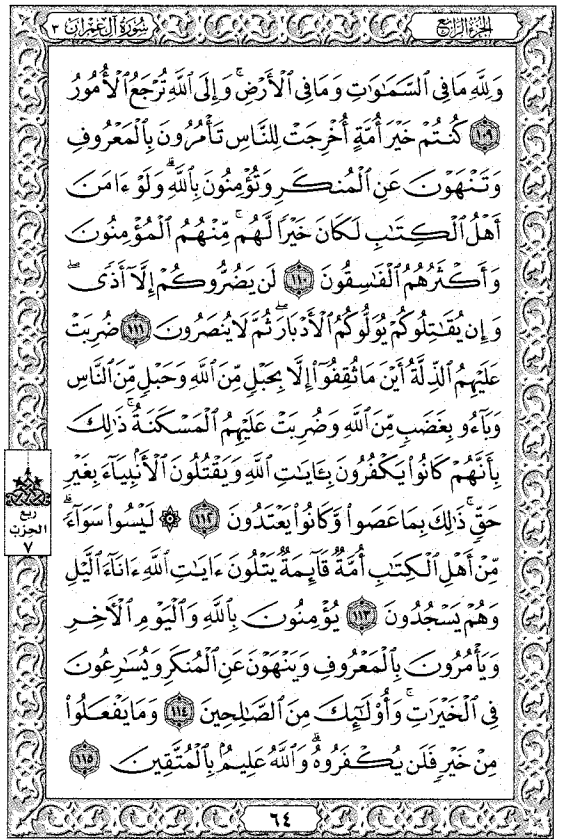 الجزء الرابع
سورة آل عمران ٣
وَلِلَّهِ مَا فِي السَّمَاوَاتِ وَمَا فِي الْأَرْضِ ۚ وَإِلَى اللَّهِ تُرْجَعُ الْأُمُورُ
١٠٩ كُنتُمْ خَيْرَ أُمَّةٍ أُخْرِجَتْ لِلنَّاسِ تَأْمُرُونَ بِالْمَعْرُوفِ
وَتَنْهَوْنَ عَنِ الْمُنكَرِ وَتُؤْمِنُونَ بِاللَّهِ ۗ وَلَوْ ءَامَنَ
أَهْلُ الْكِتَابِ لَكَانَ خَيْرًا لَّهُم ۚ مِّنْهُمُ الْمُؤْمِنُونَ
وَأَكْثَرُهُمُ الْفَاسِقُونَ ١١٠ لَن يَضُرُّوكُمْ إِلَّا أَذًى ۖ
وَإِن يُقَاتِلُوكُمْ يُوَلُّوكُمُ الْأَدْبَارَ ۖ ثُمَّ لَا يُنصَرُونَ ١١١ ضُرِبَتْ
عَلَيْهِمُ الذِّلَّةُ أَيْنَ مَا ثُقِفُوا إِلَّا بِحَبْلٍ مِّنَ اللَّهِ وَحَبْلٍ مِّنَ النَّاسِ
وَبَاءُو بِغَضَبٍ مِّنَ اللَّهِ وَضُرِبَتْ عَلَيْهِمُ الْمَسْكَنَةُ ۚ ذَٰلِكَ
بِأَنَّهُمْ كَانُوا يَكْفُرُونَ بِـَٔايَاتِ اللَّهِ وَيَقْتُلُونَ الْأَنبِيَاءَ بِغَيْرِ
حَقٍّ ۚ ذَٰلِكَ بِمَا عَصَوا وَّكَانُوا يَعْتَدُونَ ١١٢ ۞ لَيْسُوا سَوَاءً ۗ
مِّنْ أَهْلِ الْكِتَابِ أُمَّةٌ قَائِمَةٌ يَتْلُونَ ءَايَاتِ اللَّهِ ءَانَاءَ الَّيْلِ
وَهُمْ يَسْجُدُونَ ١١٣ يُؤْمِنُونَ بِاللَّهِ وَالْيَوْمِ الْآخِرِ
وَيَأْمُرُونَ بِالْمَعْرُوفِ وَيَنْهَوْنَ عَنِ الْمُنكَرِ وَيُسَارِعُونَ
فِي الْخَيْرَاتِ ۚ وَأُولَٰئِكَ مِنَ الصَّالِحِينَ ١١٤ وَمَا يَفْعَلُوا
مِنْ خَيْرٍ فَلَن يُكْفَرُوهُ ۗ وَاللَّهُ عَلِيمٌ بِالْمُتَّقِينَ ١١٥
ربع
الحزب
٧
٦٤